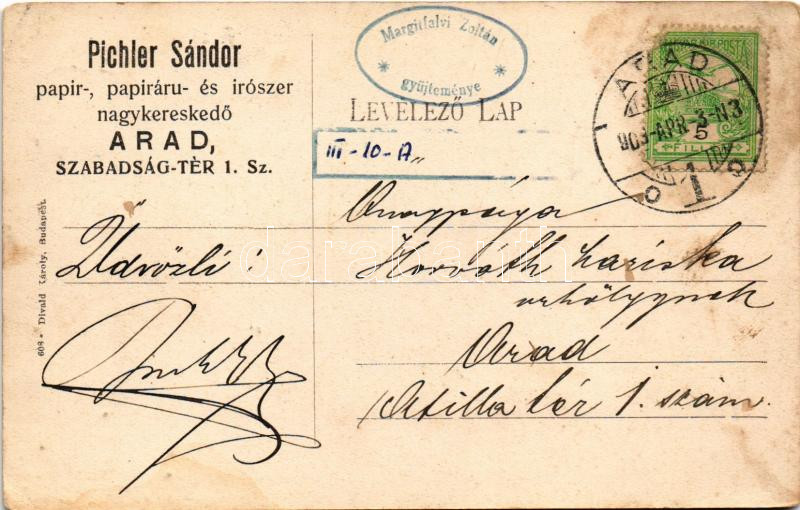 Pichler Sándor
papir-, papiráru- és irószer
nagykereskedő
ARAD,
SZABADSÁG-TÈR 1. Sz.
Margitfalvi Zoltán
gyűjteménye
LEVELEZŐ LAP
III-10-A"
ARAD
903-APR-3-N3
1
5
FILLÉR
608 - Divald Károly, Budapest.
Üdvözli:
Őnagysága
Horváth Mariska
úrhölgynek
Arad
Atilla tér 1. szám.
darabanth